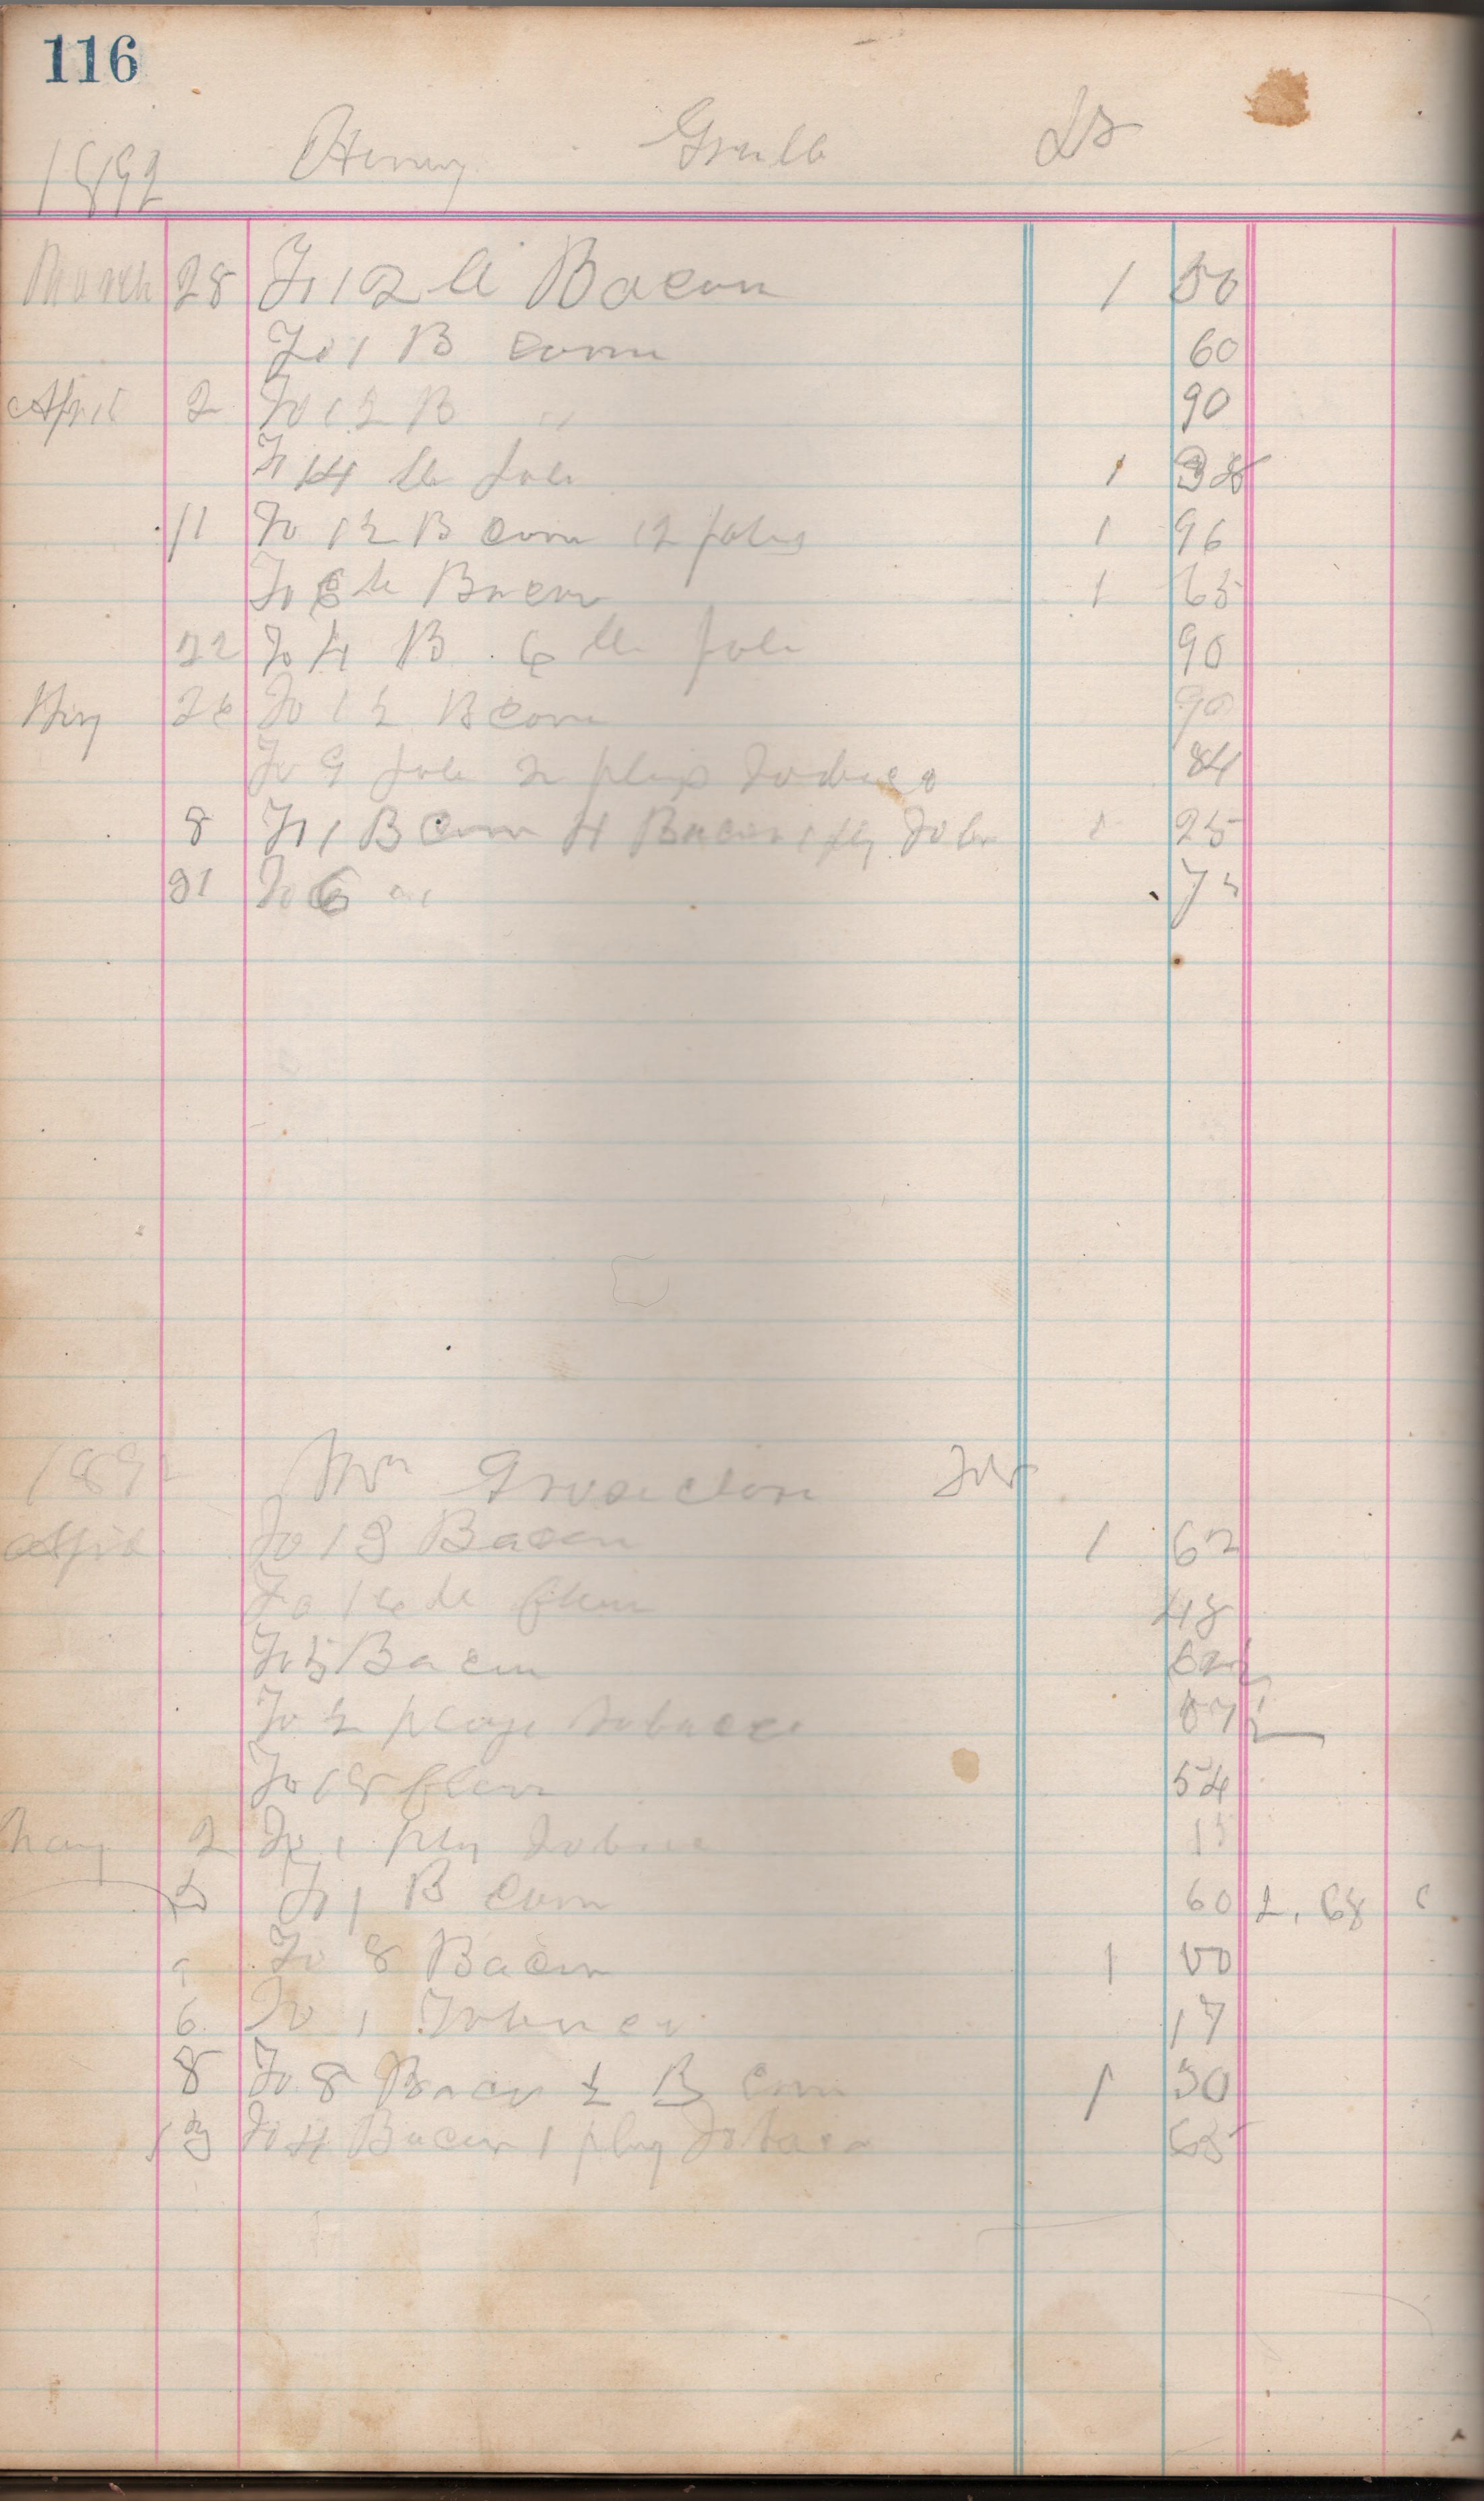 116
1892 Henry Grubb Dr
March 28 To 12 lb Bacon 1 50
To 1 B corn 60
April 2 To 1 ½ B " 90
To 14 lb Jole 1
11 To 1 ½ B corn 12 joles 1 96
To lb Bacon 1 65
22 To 4 B 6 lb Jole 90
May To 1 ½ B corn 90
To 9 Jole 2 plugs Tobacco 84
8 To 1 B Corn 4 Bacon 1 plg Tobc 25
21 To 6 75
1892 Wm Dr
April To 13 Bacon 1 62
To 16 lb flour 48
To 5 Bacon 62½
To ½ plug tobacco 07½
To 18 flour 54
May 2 To 1 plg Tobac 15
To 1 B corn 60 2.68
To 8 Bacon 1 00
6 To 1 Tobacco 17
8 To 8 Bacon ½ B corn 1 30
To 4 Bacon 1 plug Tobaco 65